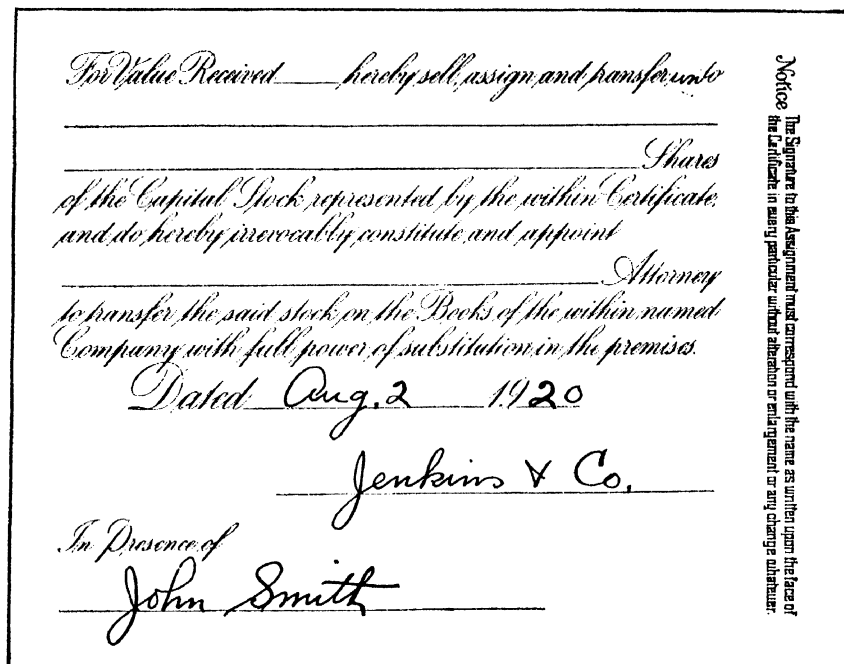 For Value Received hereby sell, assign and transfer unto
Shares
of the Capital Stock represented by the within Certificate,
and do hereby irrevocably constitute and appoint
Attorney
to transfer the said stock on the Books of the within named
Company with full power of substitution in the premises.
Dated Aug. 2 1920
Jenkins & Co.
In Presence of
John Smith
Notice The Signature to this Assignment must correspond with the name as written upon the face of
the Certificate in every particular without alteration or enlargement or any change whatever.